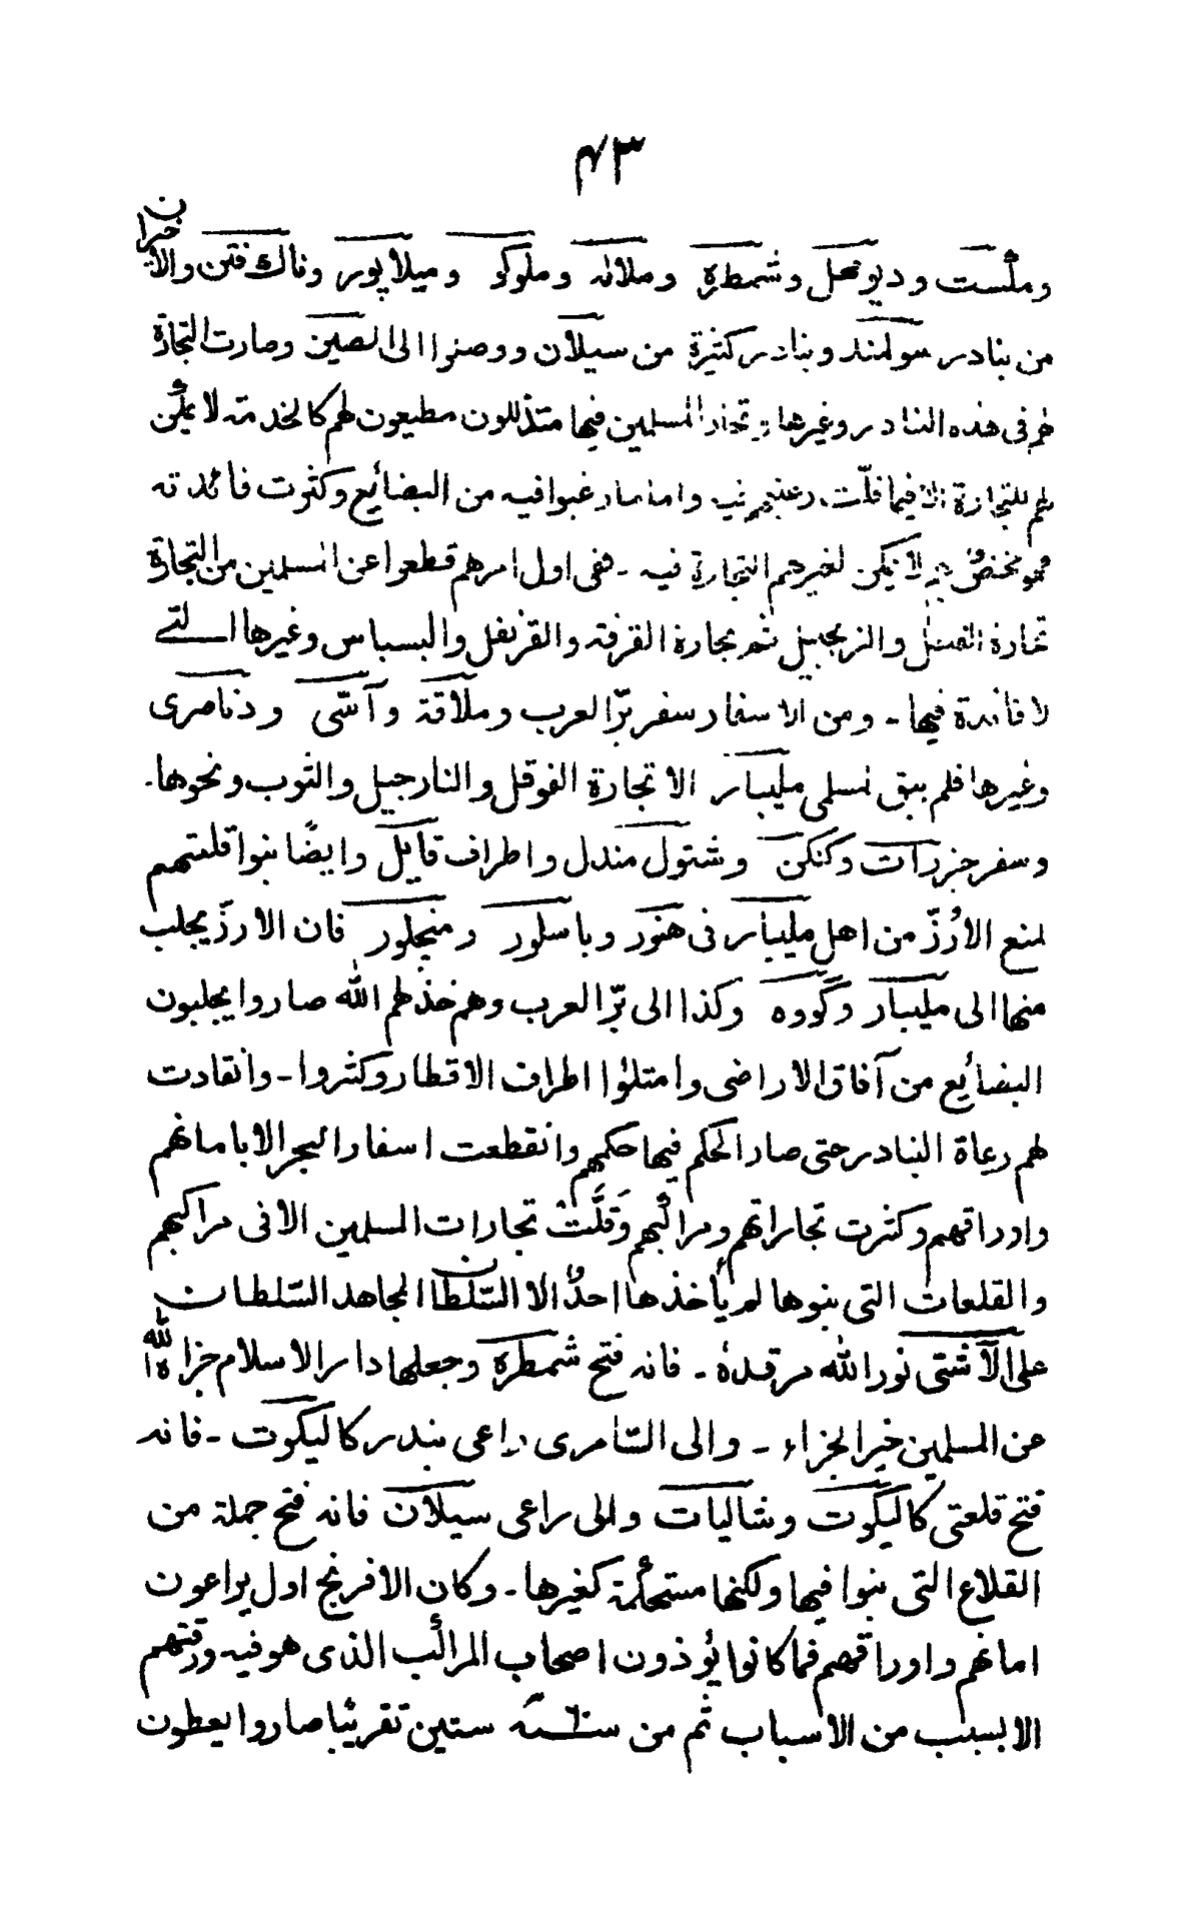 ٤٣
ومشست وديومحل وشمطرة وملاته وملوكو وميلاپور وناك فتن والاخيران
من بنادر سولمند وبنادر كثيرة من سيلان ووصنوا الى الصين وصارت التجارة
لهم فى هذه البنادر وغيرها وتجار المسلمين فيها متذللون مطيعون لهم كالخدمة لا يمكن
لهم للتجارة الا فيما قلّت رغبتهم فيه واما ما رغبوا فيه من البضائع وكثرت فائدته
فهو مختص بهم لا يمكن لغيرهم التجارة فيه ـ ففى اول امرهم قطعوا عن المسلمين من التجارة
تجارة الفلفل والزنجبيل ثم تجارة القرفة والقرنفل والبسباس وغيرها التے
لا فائدة فيها ـ ومن الاسفار سفر برّ العرب وملاقة وآشّى ودناصرى
وغيرها فلم يبق لمسلمى مليبار الا تجارة الفوفل والنارجيل والثوب ونحوها.
وسفر جزرات وكنكن وشتول مندل واطراف قايل وايضًا بنوا قلعتهم
لمنع الأرُزّ من اهل مليبار فى هنور وباسلور ومنجلور فان الارزّ يجلب
منها الى مليبار وگووه وكذا الى برّ العرب وهم خذلهم الله صاروا يجلبون
البضائع من آفاق الاراضى وامتلؤا اطراف الاقطار وكثروا ـ وانقادت
لهم رعاة البنادر حتى صار الحكم فيها حكمهم وانقطعت اسفار البحر الا بامانهم
واوراقهم وكثرت تجاراتهم ومراكبهم وَقلَّتْ تجارات المسلمين الا فى مراكبهم
والقلعات التى بنوها لم يأخذها احدٌ الا السّلطان المجاهد السّلطان
على الآشتى نور الله مرقدهٗ ـ فانه فتح شمطرة وجعلها دار الاسلام جزاه الله
عن المسلمين خير الجزاء ـ والى السّامرى راعى بندر كاليكوت ـ فانه
فتح قلعتى كاليكوت وشاليات والى راعى سيلان فانه فتح جملة من
القلاع التى بنوا فيها ولكنها مستحكمة كغيرها ـ وكان الافرنج اول يراعون
امانهم واوراقهم فما كانوا يؤذون اصحاب المراكب الذى هو فيه ورقتهم
الا بسبب من الاسباب ثم من سنة ٦٠ ستين تقريبًا صاروا يعطون